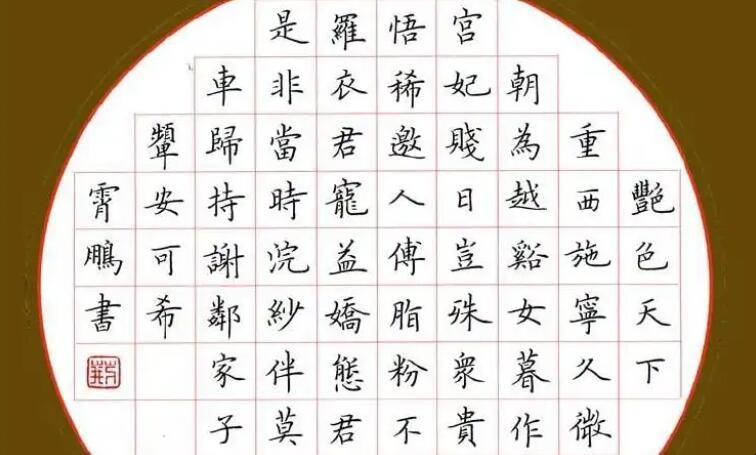 艷色天下
重西施寧久微
朝為越谿女暮作
宮妃賤日豈殊衆貴
悟稀邀人傅脂粉不
羅衣君寵益嬌態君
是非當時浣紗伴莫
車歸持謝鄰家子
顰安可希
霄鵬書